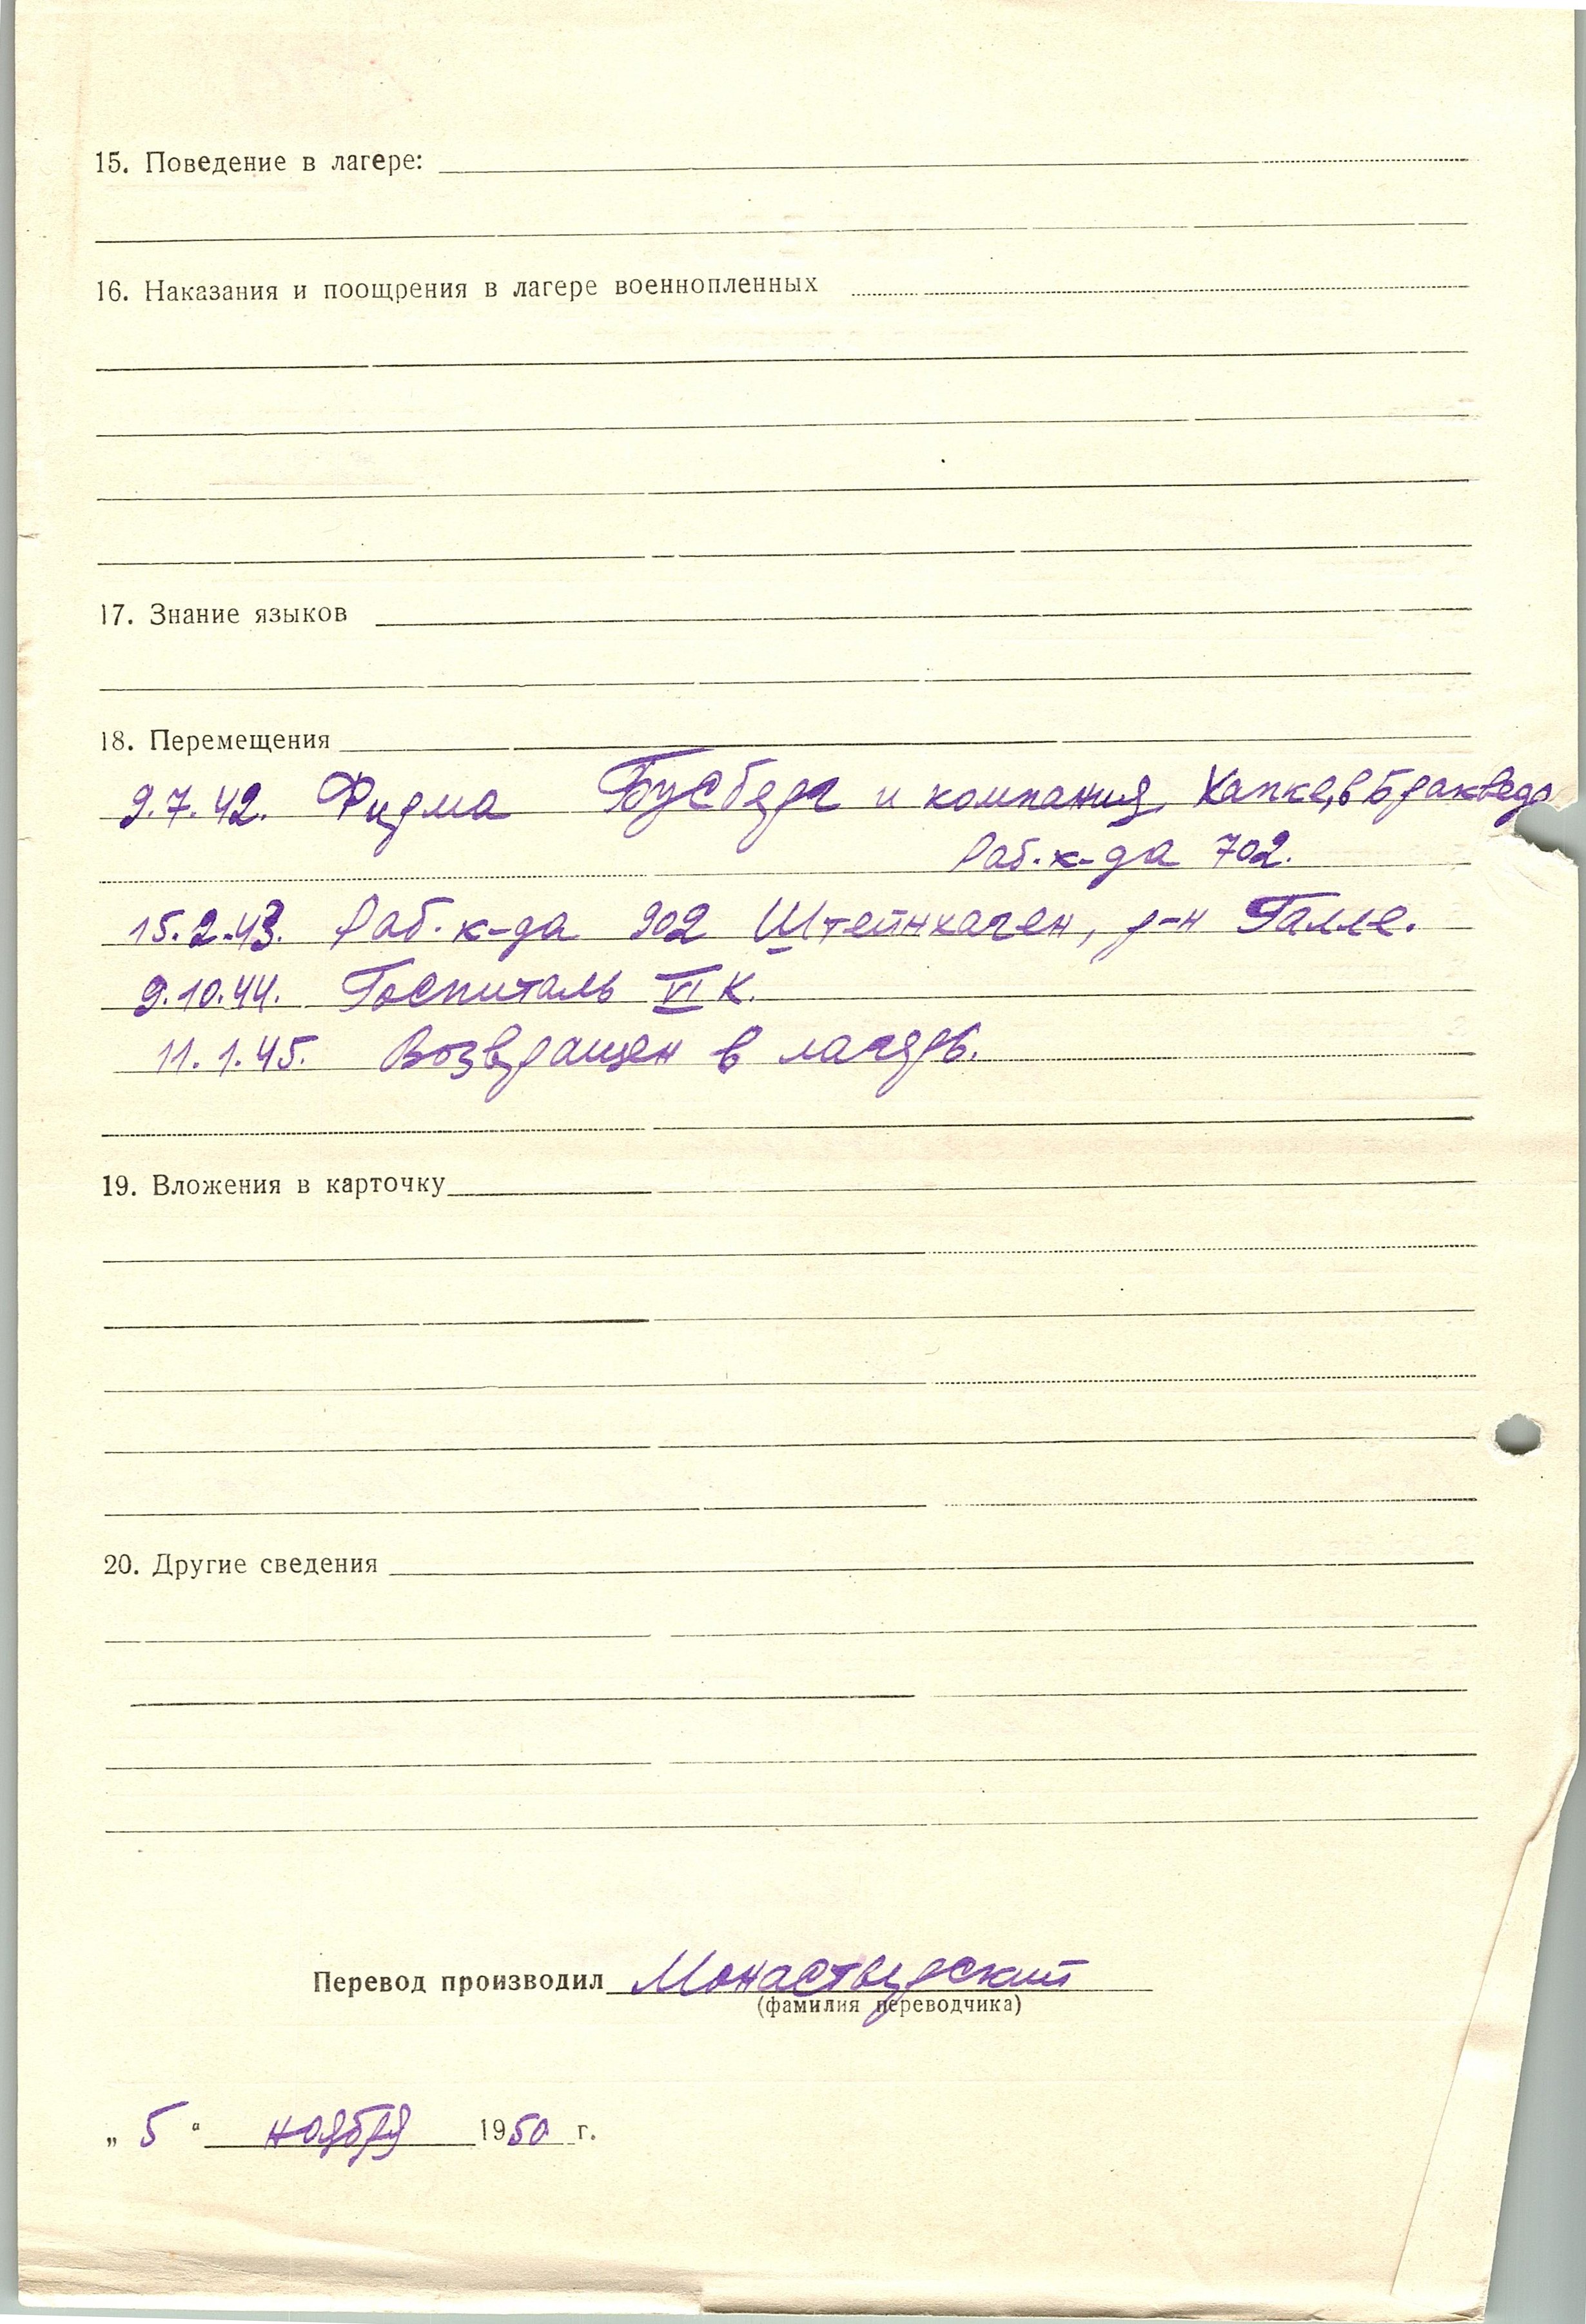 15. Поведение в лагере:
16. Наказания и поощрения в лагере военнопленных
17. Знание языков
18. Перемещения
9.7.42. Фирма Бусберг и компания, Хапке, в Бракведе
Раб. к-да 702.
15.2.43. Раб. к-да 902 Штейнхаген, р-н Галле.
9.10.44. Госпиталь VI К.
11.1.45. Возвращен в лагерь.
19. Вложения в карточку
20. Другие сведения
Перевод производил Монастырский
(фамилия переводчика)
„ 5 “ ноября 1950 г.